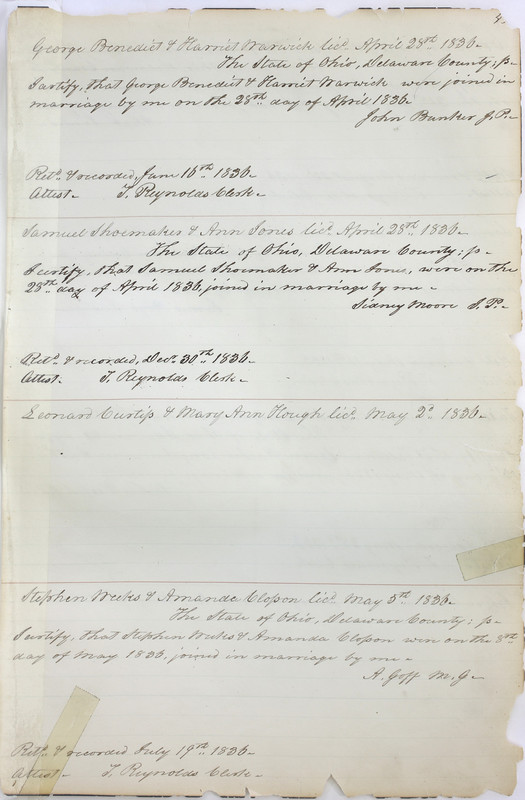 George Benedict & Harriet Warwick licd. April 28th 1836.
The State of Ohio, Delaware County; ss.
I certify, that George Benedict & Harriet Warwick were joined in
marriage by me on the 28th day of April 1836.
John Bunker J.P.
Retd. & recorded, June 16th 1836.
Attest. T. Reynolds Clerk.
Samuel Shoemaker & Ann Jones licd. April 28th 1836.
The State of Ohio, Delaware County; ss.
I certify, that Samuel Shoemaker & Ann Jones, were on the
28th day of April 1836, joined in marriage by me.
Sidney Moore J.P.
Retd. & recorded, Decr. 30th 1836.
Attest. T. Reynolds Clerk.
Leonard Curtiss & Mary Ann Hough licd. May 2d 1836.
Stephen Weeks & Amanda Closson licd. May 5th 1836.
The State of Ohio, Delaware County; ss.
I certify, that Stephen Weeks & Amanda Closson were on the 8th
day of May 1836, joined in marriage by me.
A. Goff M.G.
Retd. & recorded July 19th 1836.
Attest. T. Reynolds Clerk.